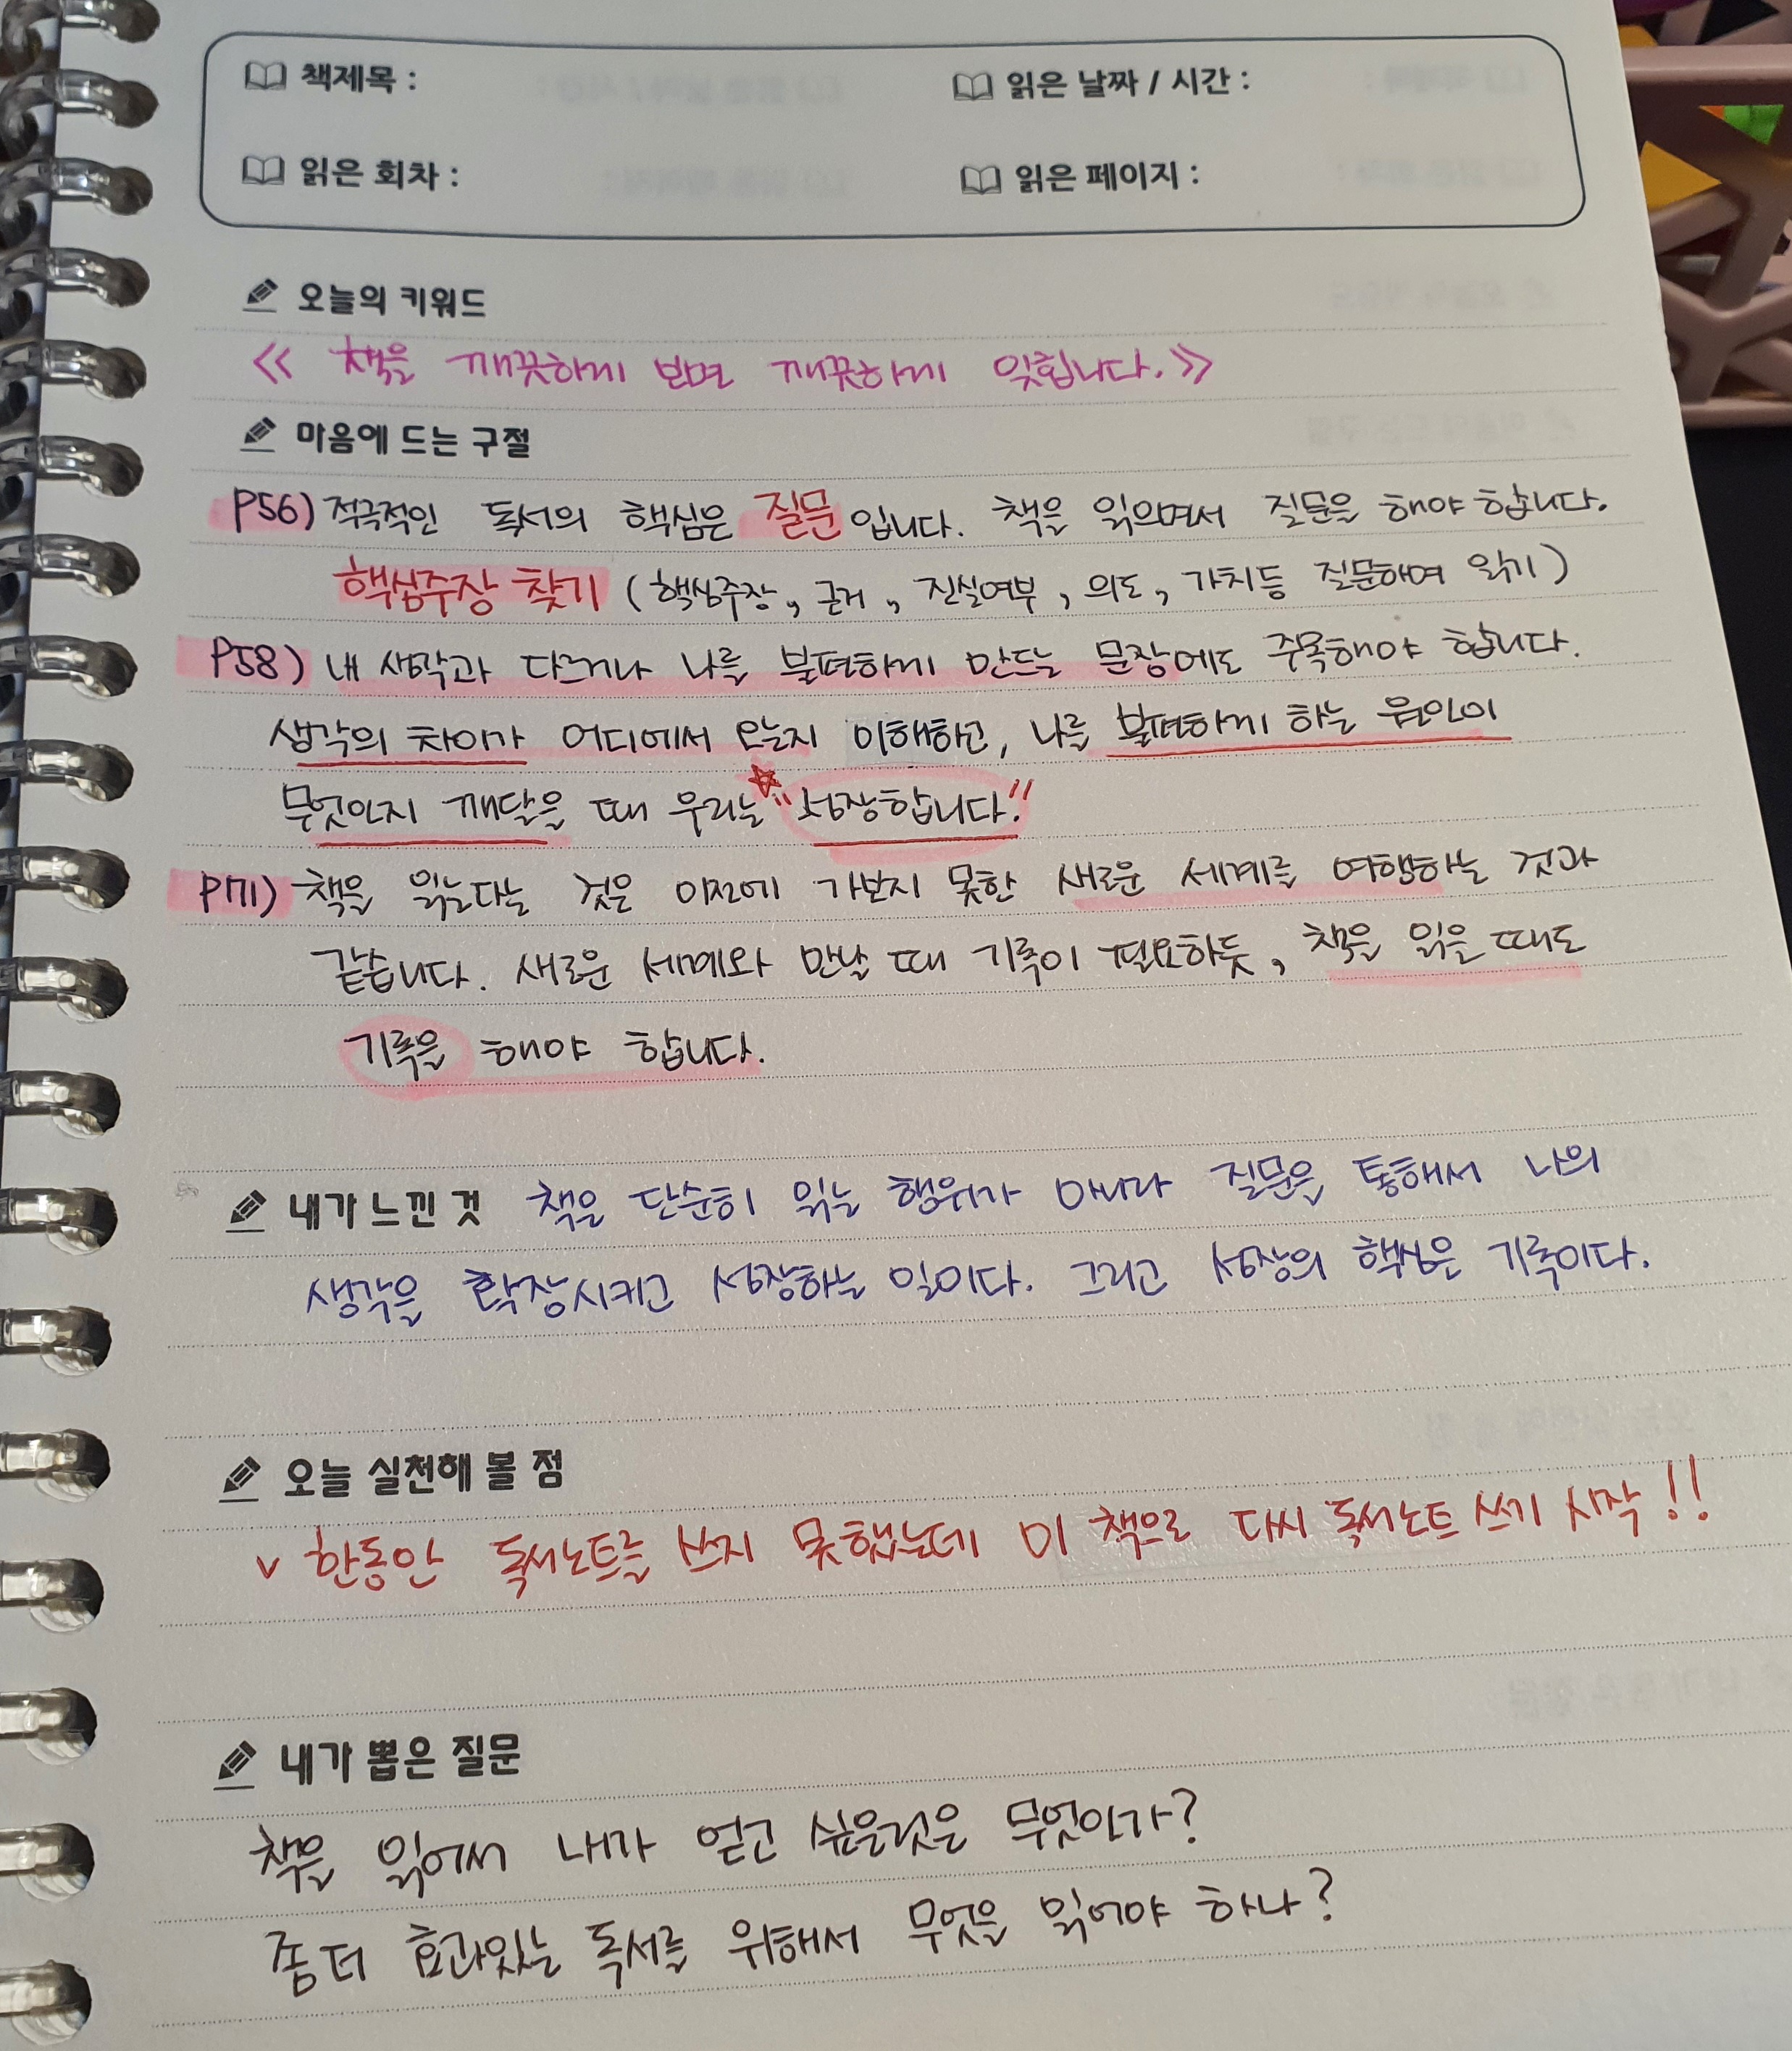 책제목 : 읽은 날짜 / 시간 :
읽은 회차 : 읽은 페이지 :
오늘의 키워드
≪ 책을 깨끗하게 보면 깨끗하게 잊힙니다. ≫
마음에 드는 구절
P56) 적극적인 독서의 핵심은 질문 입니다. 책을 읽으면서 질문을 해야 합니다.
핵심주장 찾기 (핵심주장, 근거, 진실여부, 의도, 가치등 질문하며 읽기)
P58) 내 생각과 다르거나 나를 불편하게 만드는 문장에도 주목해야 합니다.
생각의 차이가 어디에서 오는지 이해하고, 나를 불편하게 하는 원인이
무엇인지 깨달을 때 우리는 ☆"성장합니다."
P171) 책을 읽는다는 것은 이전에 가보지 못한 새로운 세계를 여행하는 것과
같습니다. 새로운 세계와 만날 때 기록이 필요하듯, 책을 읽을 때도
기록을 해야 합니다.
내가 느낀 것 책은 단순히 읽는 행위가 아니라 질문을 통해서 나의
생각을 확장시키고 성장하는 일이다. 그리고 성장의 핵심은 기록이다.
오늘 실천해 볼 점
v 한동안 독서노트를 쓰지 못했는데 이 책으로 다시 독서노트 쓰기 시작!!
내가 뽑은 질문
책을 읽어서 내가 얻고 싶은것은 무엇인가?
좀더 효과있는 독서를 위해서 무엇을 읽어야 하나?